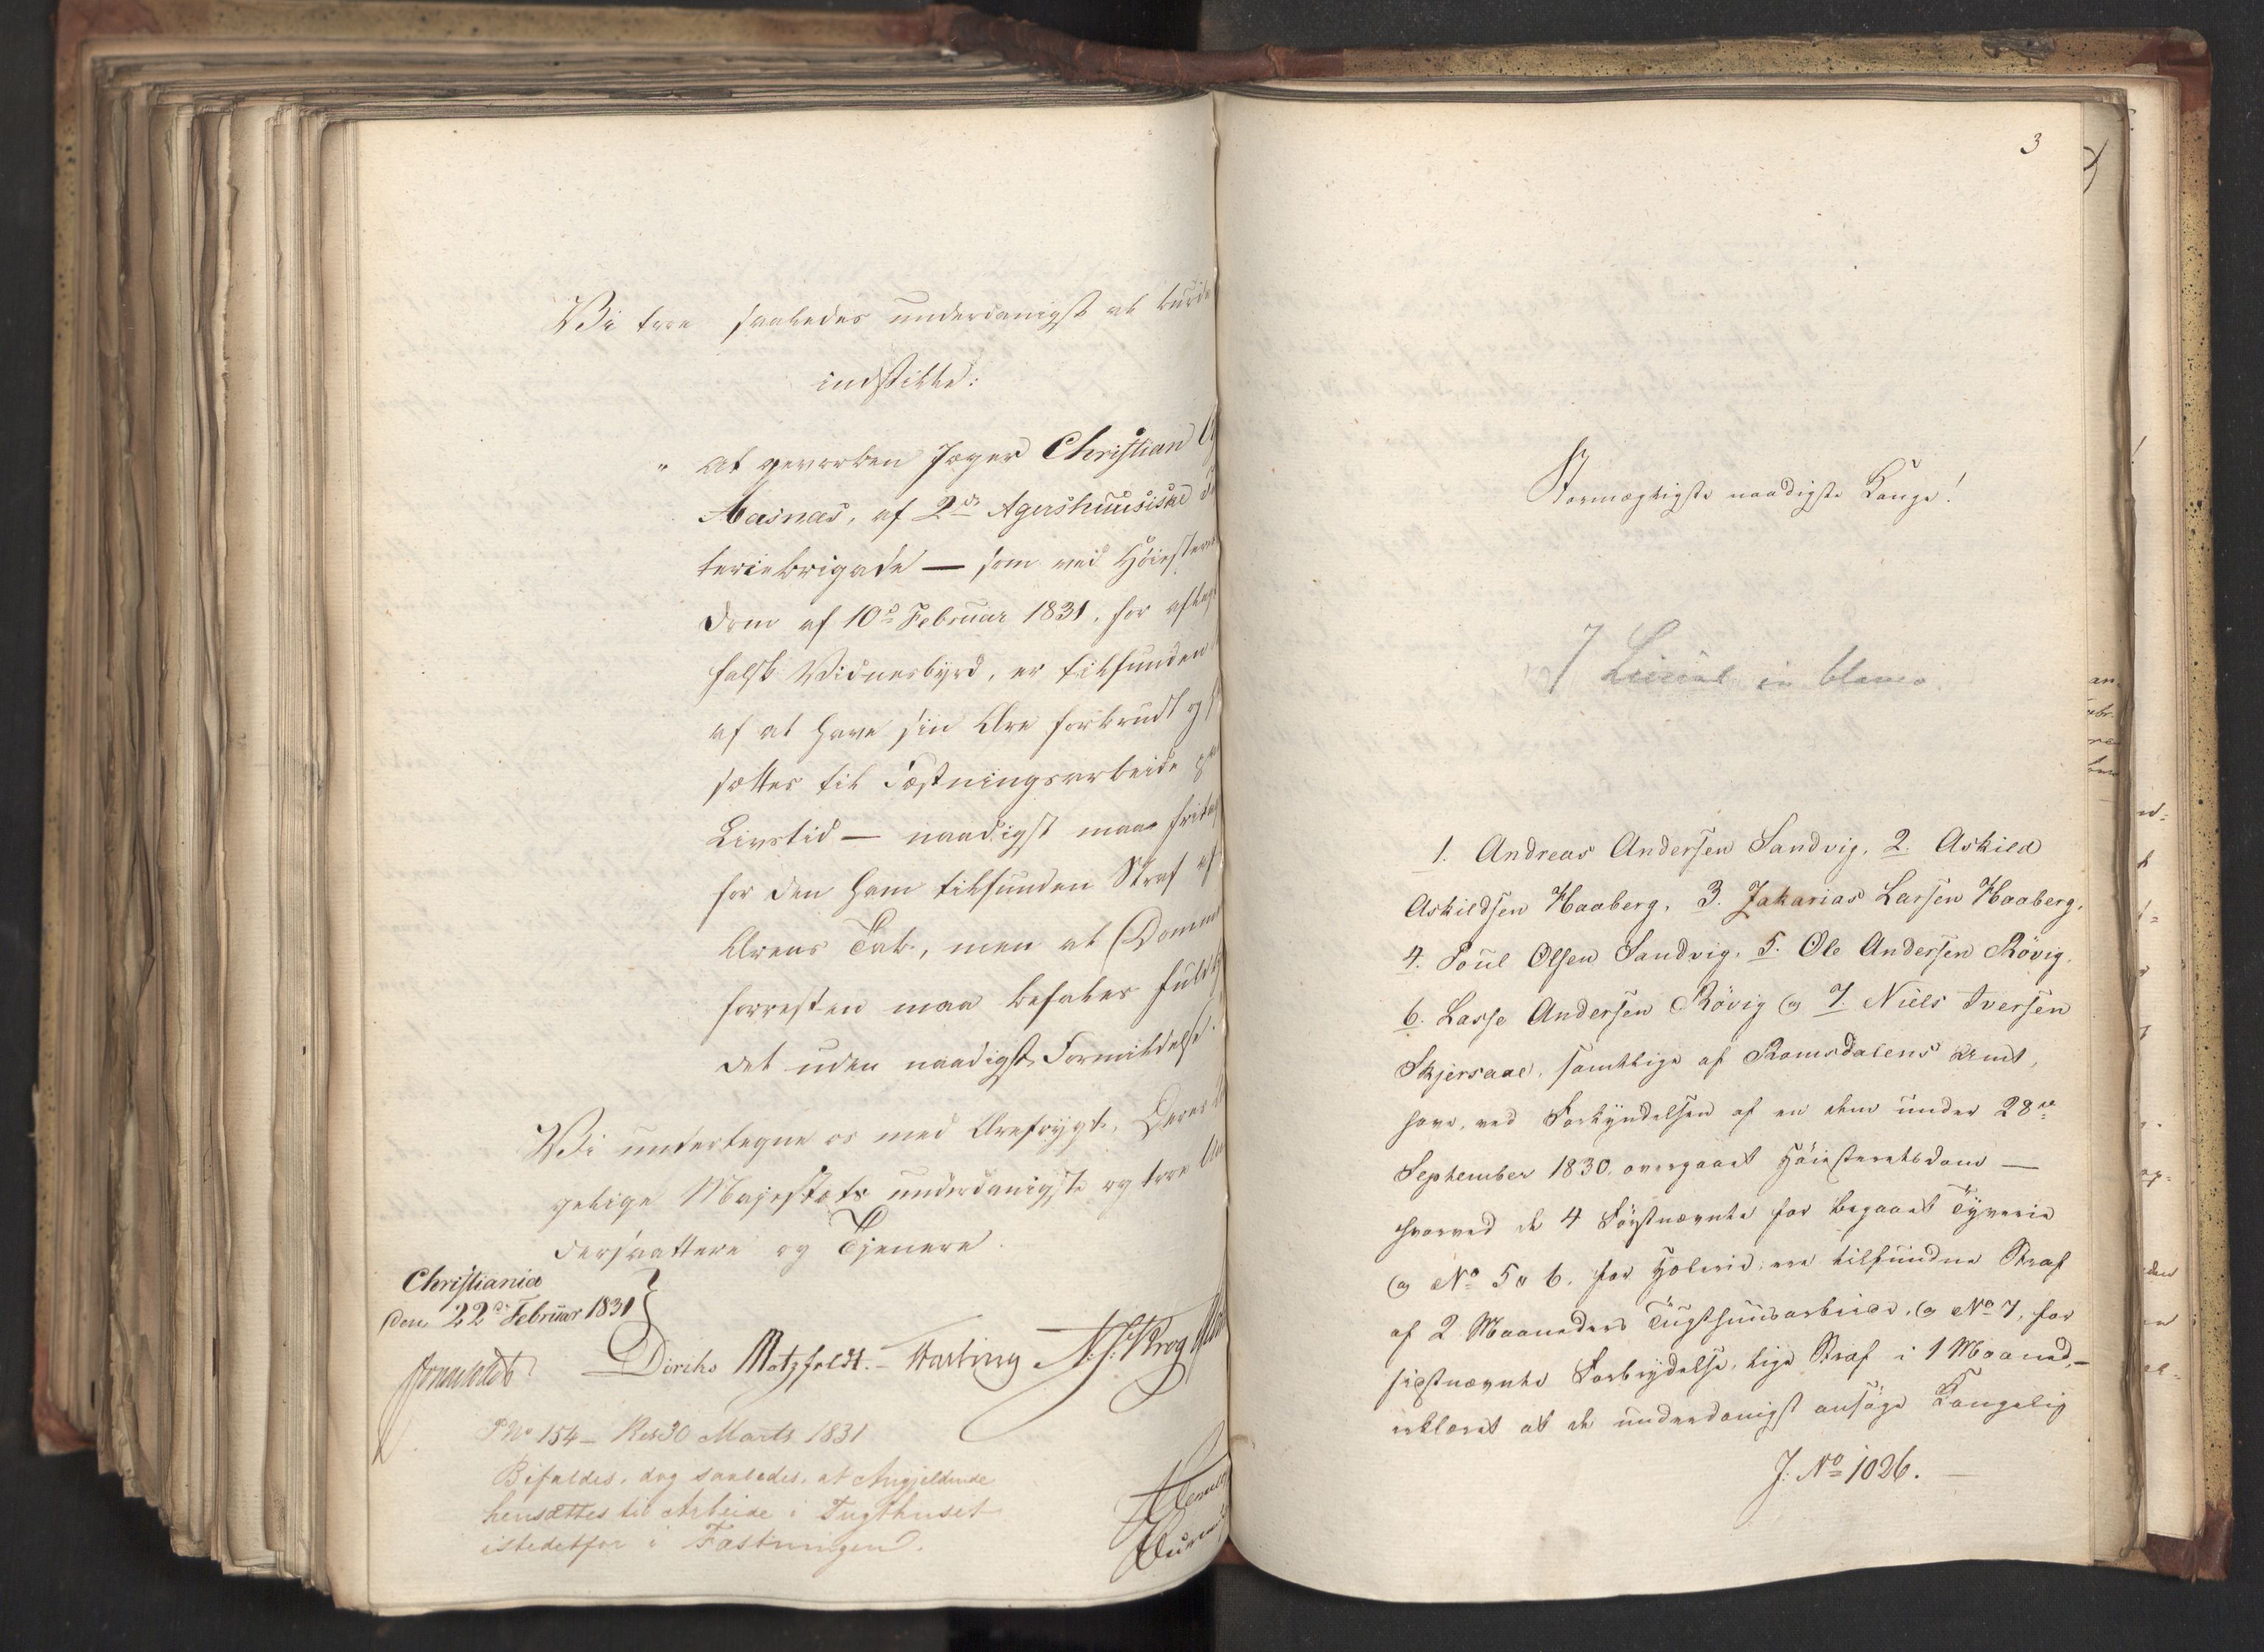 Vi troe saaledes underdanigst at burde
indstille:
"at gevorben Jæger Christian
Aasnæs, af 2den Agershuusiske
teriebrigade — som ved Höiester
Dom af 10de Februar 1831, for aflagt
falsk Vidnesbyrd, er tilfunden
af at have sin Ære forbrudt og
sættes til Fæstningsarbeide paa
Livstid — naadigst maa fritages
for den ham tilfundne Straf af
Ærens Tab, men at Dommen
forresten maa befales fuldby
det uden naadigst Formildelse."
Vi undertegne os med Ærefrygt, Deres
gelige Majestæts underdanigste og troe
dersaattere og Tjenere.
Christiania
den 22de Februar 1831
Diriks Motzfeldt. Vasting N. J. Krog
P No 154 — Res 30 Marts 1831
Bifaldes, dog saaledes, at Angjeldende
hensættes til Arbeide i Tugthuset
istedetfor i Fæstningen.
3
Stormægtigste naadigste Konge!
7 in blanco
1. Andreas Andersen Sandvig, 2. Askild
Askildsen Haaberg, 3. Zakarias Larsen Haaberg,
4. Poul Olsen Sandvig, 5. Ole Andersen Rövig,
6. Lasse Andersen Rövig og 7. Niels Iversen
Skjersaae, samtlige af Romsdalens Amt,
have, ved Forkyndelsen af en dem under 28de
September 1830, overgaaet Höiesteretsdom —
hvorved de 4 Förstnævnte for begaaet Tyverie
og No 5 & 6. for Hæleri, ere tilfundne Straf
af 2 Maaneders Tugthuusarbeide, og No 7, for
sidstnævnte Forbrydelse, lige Straf i 1 Maaned, —
erklæret at de underdanigst ansöge Kongelig
J. No 1026. —